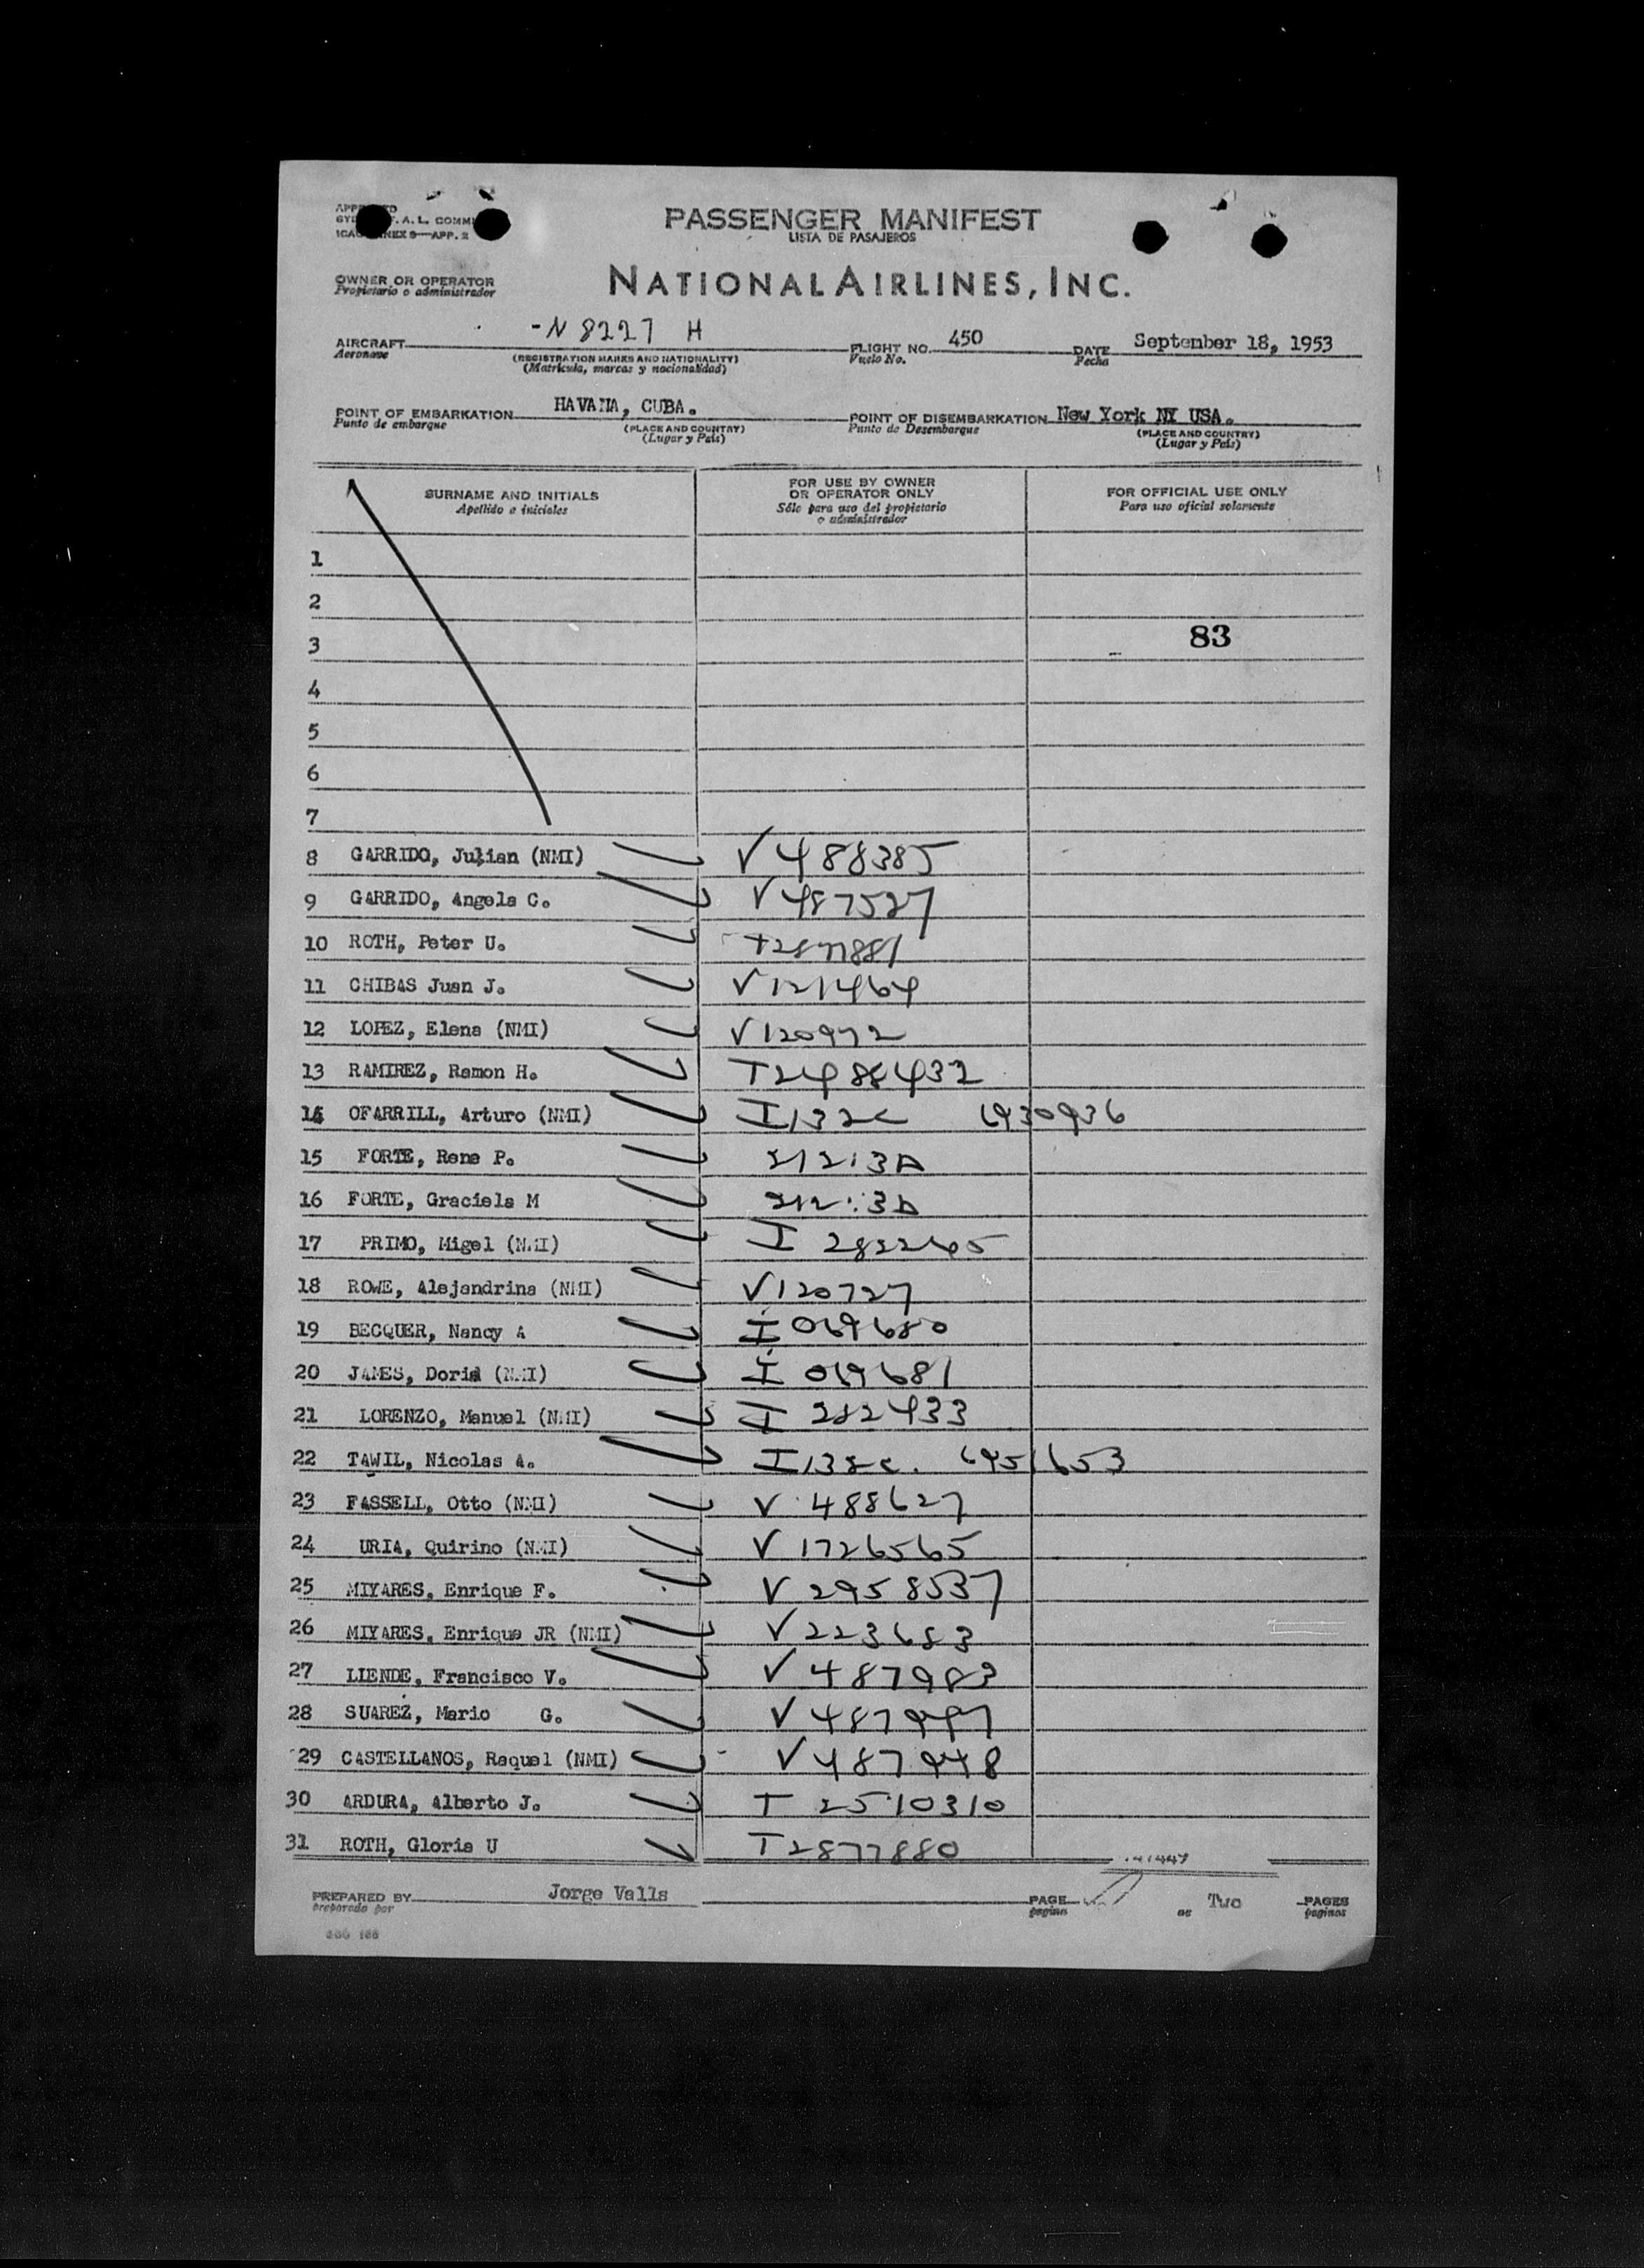 PASSENGER MANIFEST
LISTA DE PASAJEROS
A. L. COMM
ANNEX 9—APP. 2
OWNER OR OPERATOR
Propietario o administrador
NATIONAL AIRLINES, INC.
AIRCRAFT -N 8227 H FLIGHT NO. 450 DATE September 18, 1953
Aeronave (REGISTRATION MARKS AND NATIONALITY) Vuelo No. Fecha
(Matricula, marcas y nacionalidad)
POINT OF EMBARKATION HAVANA, CUBA. POINT OF DISEMBARKATION New York NY USA.
Punto de embarque (PLACE AND COUNTRY) Punto de Desembarque (PLACE AND COUNTRY)
(Lugar y País) (Lugar y País)
SURNAME AND INITIALS FOR USE BY OWNER OR OPERATOR ONLY FOR OFFICIAL USE ONLY
Apellido e iniciales Sólo para uso del propietario o administrador Para uso oficial solamente
1
2
3 83
4
5
6
7
8 GARRIDO, Julian (NMI) V 488385
9 GARRIDO, Angela C. V 487527
10 ROTH, Peter U. T2877881
11 CHIBAS Juan J. V121464
12 LOPEZ, Elena (NMI) V120972
13 RAMIREZ, Ramon H. T2488432
14 OFARRILL, Arturo (NMI) I132c 6930936
15 FORTE, Rene P. 212.3D
16 FORTE, Graciela M 212.3D
17 PRIMO, Migel (NMI) I 282265
18 ROWE, Alejandrina (NMI) V120727
19 BECQUER, Nancy A I 069680
20 JAMES, Doris (NMI) I 069681
21 LORENZO, Manuel (NMI) I 282433
22 TAWIL, Nicolas A. I132c. 6951653
23 FASSELL, Otto (NMI) V 488627
24 URIA, Quirino (NMI) V 1726565
25 MIYARES, Enrique F. V 2958537
26 MIYARES, Enrique JR (NMI) V 223683
27 LIENDE, Francisco V. V 487983
28 SUAREZ, Mario G.
29 CASTELLANOS, Raquel (NMI) V 487948
30 ARDURA, Alberto J. T 2510310
31 ROTH, Gloria U T2877880
PREPARED BY Jorge Valls PAGE Two PAGES
preparado por pagina de paginas